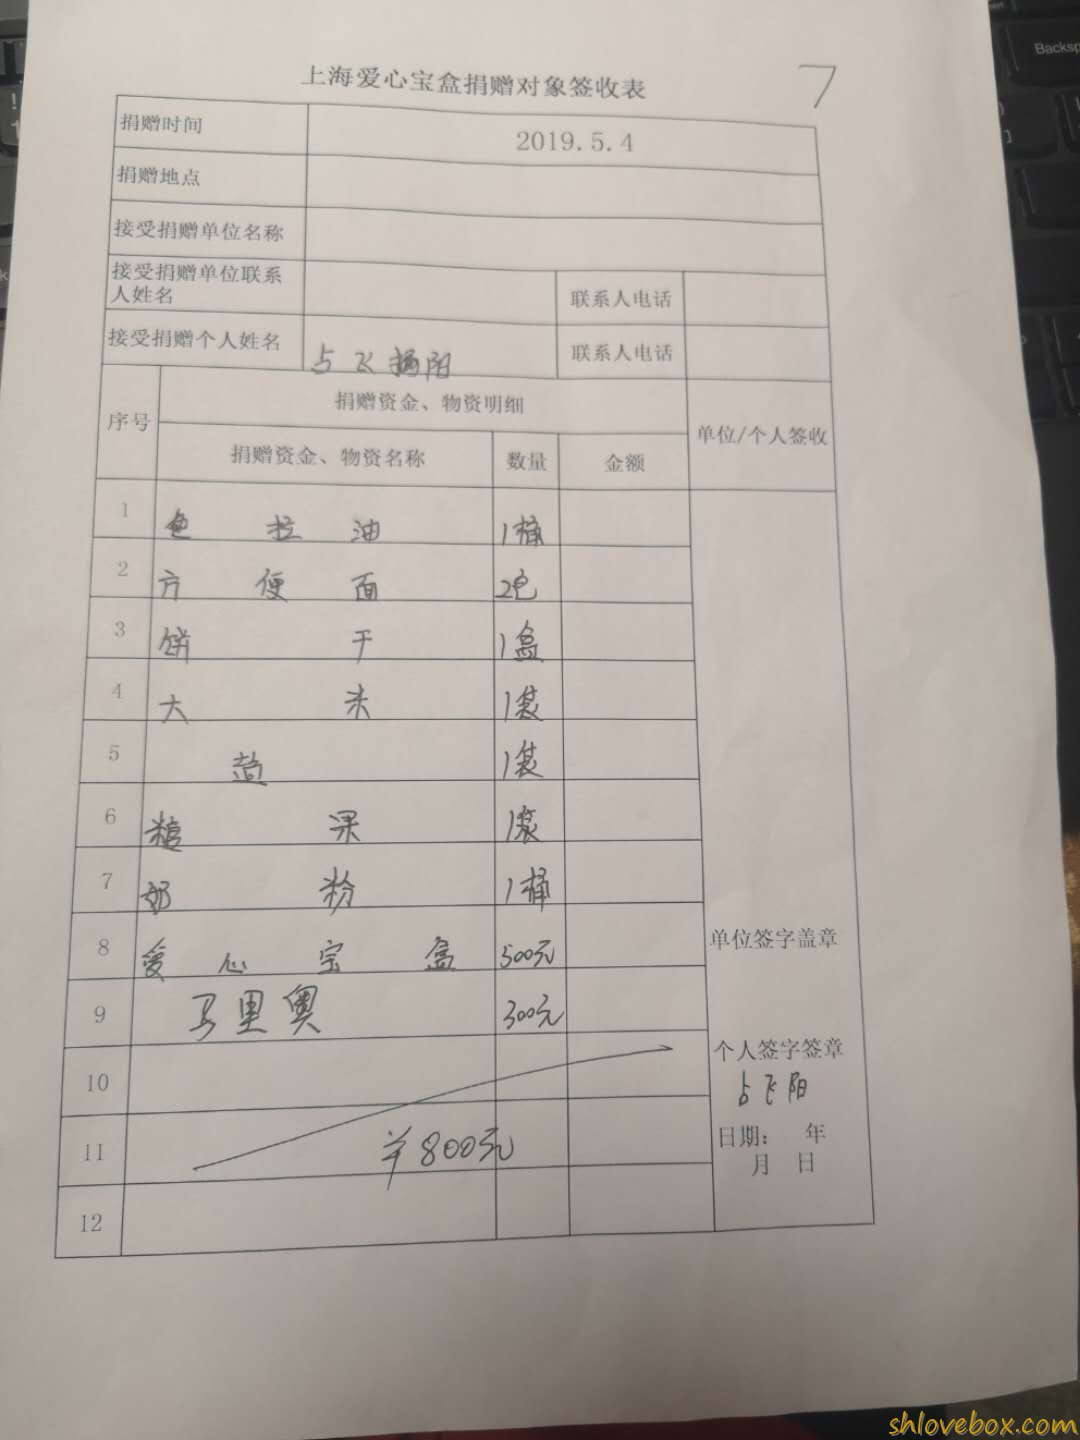 上海爱心宝盒捐赠对象签收表
7
捐赠时间 2019.5.4
捐赠地点
接受捐赠单位名称
接受捐赠单位联系人姓名 联系人电话
接受捐赠个人姓名 占飞扬阳 联系人电话
序号 捐赠资金、物资明细 单位/个人签收
捐赠资金、物资名称 数量 金额
1 色拉油 1桶
2 方便面 2包
3 饼干 1盒
4 大米 1袋
5 1袋
6 糖果 1袋
7 奶粉 1桶
8 爱心宝盒 500元
9 马里奥 300元
10
11 ¥800元
12
单位签字盖章
个人签字签章
占飞阳
日期： 年
月 日
Backsp
shlovebox.com